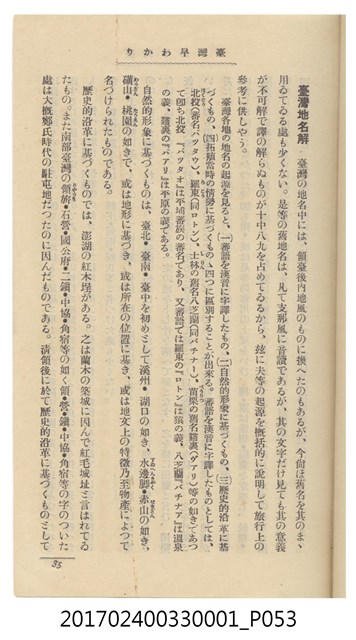 臺灣早わかり
臺灣地名解　臺灣の地名中には、領臺後內地風のものに換へたのもあるが、今尙ほ舊名を其のまゝ
用ゐてゐる處も少くない。是等の舊地名は、凡て支那風に音讀であるが、其の文字だけ見ても其の意義
が不可解で譯の解らぬものが十中八九を占めてゐるから、玆に夫等の起源を概括的に說明して旅行上の
參考に供しやう。
臺灣各地の地名の起源を見ると、(一)蕃語を漢音に字譯したもの、(二)自然的形象に基づくもの、(三)歷史的沿革に基
づくもの、(四)拓殖當時の情勢に基づくもの、四つに區別することが出來る。蕃語を漢音に字譯したものとしては、
北投(蕃名パツタウ)、羅東(同ロトン)、士林の舊名八芝蘭(同パチナー)、苗栗の舊名貓裏(パアリ)等の如きであつ
て卽ち北投『パツタオ』は平埔蕃族の蕃名であり、又蕃語では羅東の『ロトン』は猿の義、八芝蘭『パチナア』は溫泉
の義、貓裏の『パアリ』は平原の義である。
自然的形象に基づくものは、臺北•臺南•臺中を初めとして溪州•湖口の如き、水邊脚•赤山の如き、
礦山•桃園の如きで、或は地形に基づき、或は所在の位置に基き、或は地文上の特徵乃至物產によつて
名づけられたものである。
歷史的沿革に基づくものでは、澎湖の紅木埕がある。之は蘭木の築城に因んで紅毛城址と言はれてゐ
たもの。また南部臺灣の領旂•石營•國公府•二鎭•中協•角宿等の如く領•營•鎭•中協•角宿等の字のついた
處は大槪鄭氏時代の駐屯地だつたのに因んだものである。淸領後に於て歷史的沿革に基づくものとして
35
201702400330001_P053